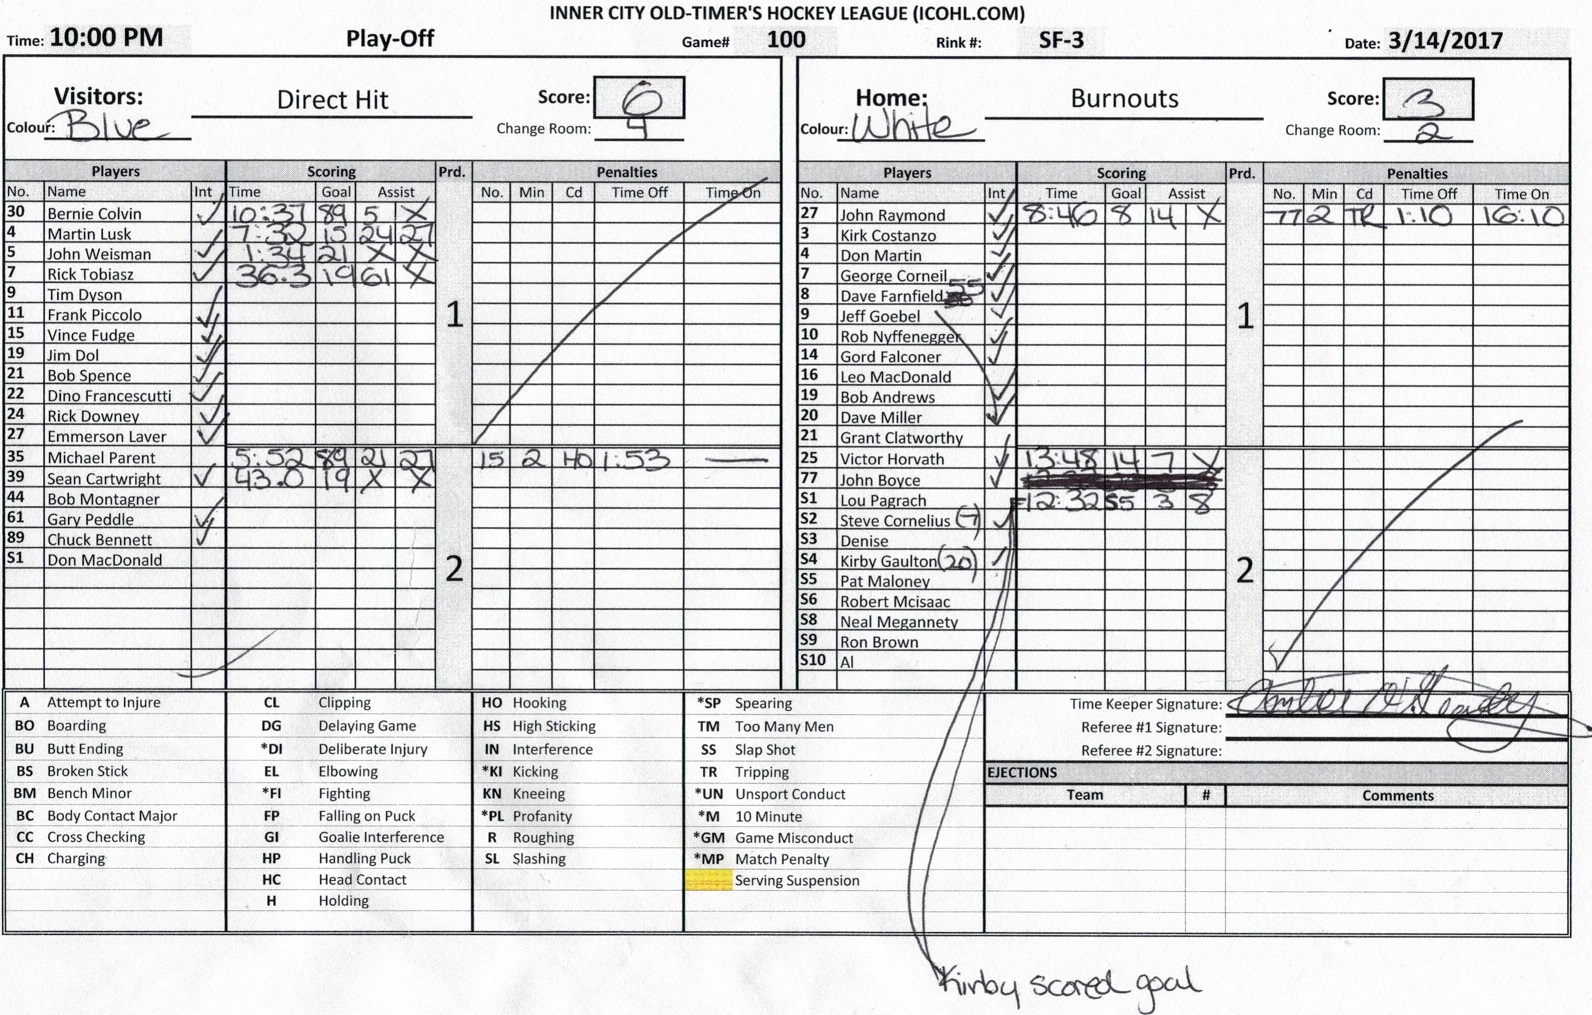 INNER CITY OLD-TIMER'S HOCKEY LEAGUE (ICOHL.COM)
Time: 10:00 PM Play-Off Game# 100 Rink #: SF-3 Date: 3/14/2017
Visitors: Direct Hit Score: 6
Colour: Blue Change Room: 4
Home: Burnouts Score: 3
Colour: White Change Room: 2
Players Scoring Prd. Penalties
No. Name Int Time Goal Assist No. Min Cd Time Off Time On
30 Bernie Colvin 10:37 89 5 X
4 Martin Lusk 7:32 15 24 27
5 John Weisman 1:34 21 X X
7 Rick Tobiasz 36.3 19 61 X
9 Tim Dyson
11 Frank Piccolo
1
15 Vince Fudge
19 Jim Dol
21 Bob Spence
22 Dino Francescutti
24 Rick Downey
27 Emmerson Laver
35 Michael Parent 5:52 89 21 27 15 2 HO 1:53
39 Sean Cartwright 43.0 19 X X
44 Bob Montagner
61 Gary Peddle
89 Chuck Bennett
S1 Don MacDonald
2
Players Scoring Prd. Penalties
No. Name Int Time Goal Assist No. Min Cd Time Off Time On
27 John Raymond 8:46 8 14 X 77 2 TR 1:10 16:10
3 Kirk Costanzo
4 Don Martin
7 George Corneil
8 Dave Farnfield 55
9 Jeff Goebel
1
10 Rob Nyffenegger
14 Gord Falconer
16 Leo MacDonald
19 Bob Andrews
20 Dave Miller
21 Grant Clatworthy
25 Victor Horvath 13:48 14 7 X
77 John Boyce
S1 Lou Pagrach 12:32 55 3 8
S2 Steve Cornelius (7)
S3 Denise
S4 Kirby Gaulton (20)
2
S5 Pat Maloney
S6 Robert Mcisaac
S8 Neal Megannety
S9 Ron Brown
S10 Al
A Attempt to Injure CL Clipping HO Hooking *SP Spearing
BO Boarding DG Delaying Game HS High Sticking TM Too Many Men
BU Butt Ending *DI Deliberate Injury IN Interference SS Slap Shot
BS Broken Stick EL Elbowing *KI Kicking TR Tripping
BM Bench Minor *FI Fighting KN Kneeing *UN Unsport Conduct
BC Body Contact Major FP Falling on Puck *PL Profanity *M 10 Minute
CC Cross Checking GI Goalie Interference R Roughing *GM Game Misconduct
CH Charging HP Handling Puck SL Slashing *MP Match Penalty
HC Head Contact Serving Suspension
H Holding
Time Keeper Signature:
Referee #1 Signature:
Referee #2 Signature:
EJECTIONS
Team # Comments
Kirby scored goal